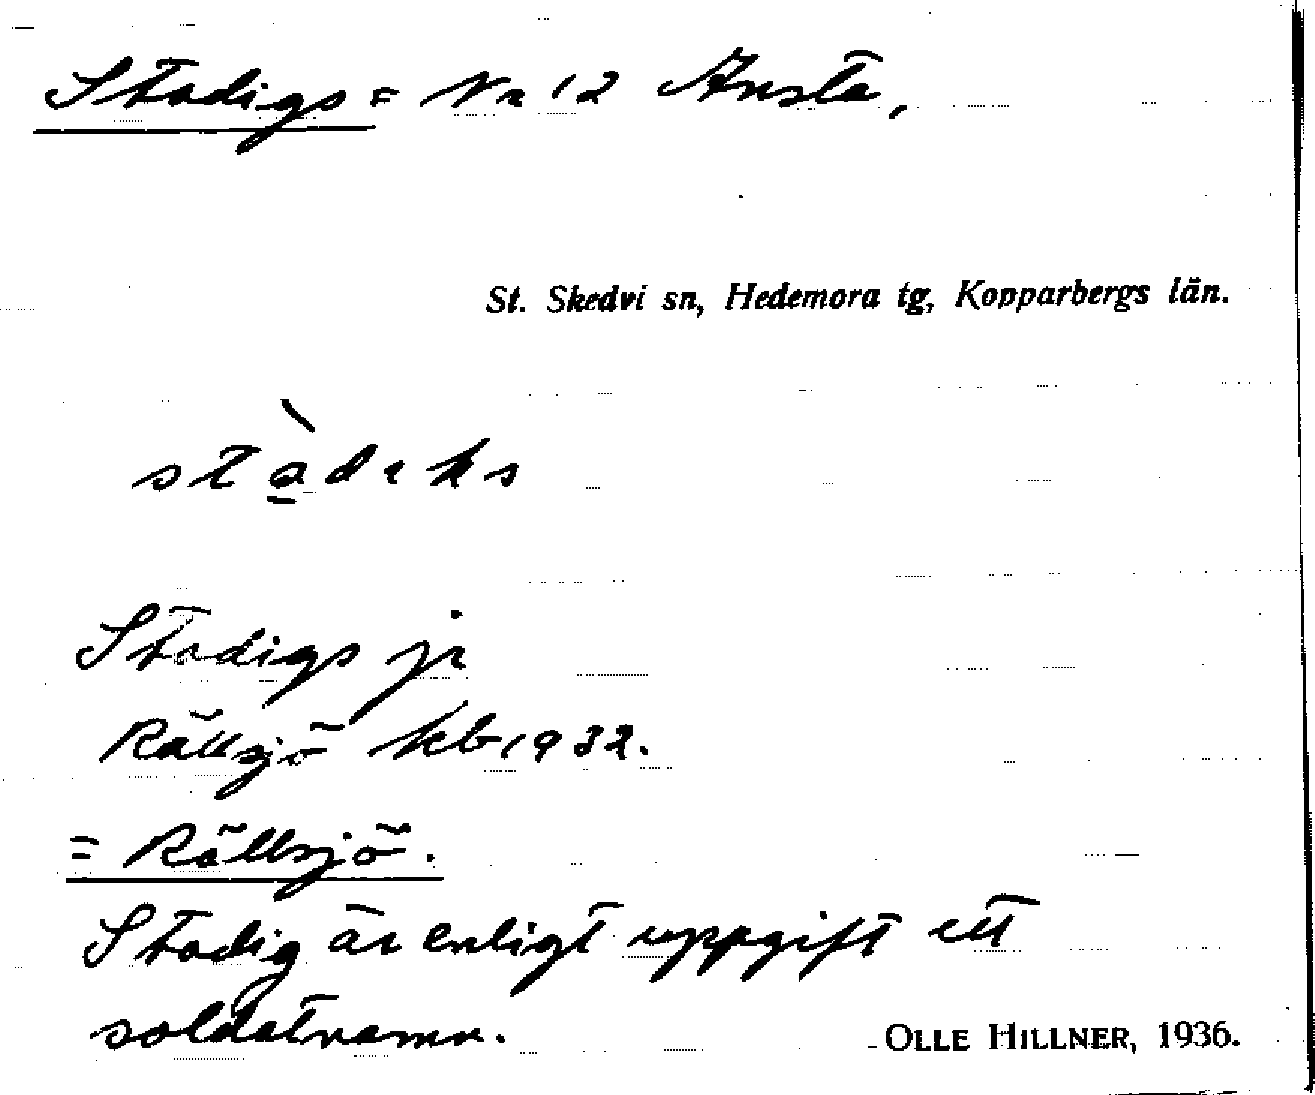 Stadigs = Nr 12 Ansta,
St. Skedvi sn, Hedemora tg, Kopparbergs län.
stàdıks
Stadigs jr
Rällsjö kb 1932.
= Rällsjö.
Stadig är enligt uppgift ett
soldatnamn.
OLLE HILLNER, 1936.